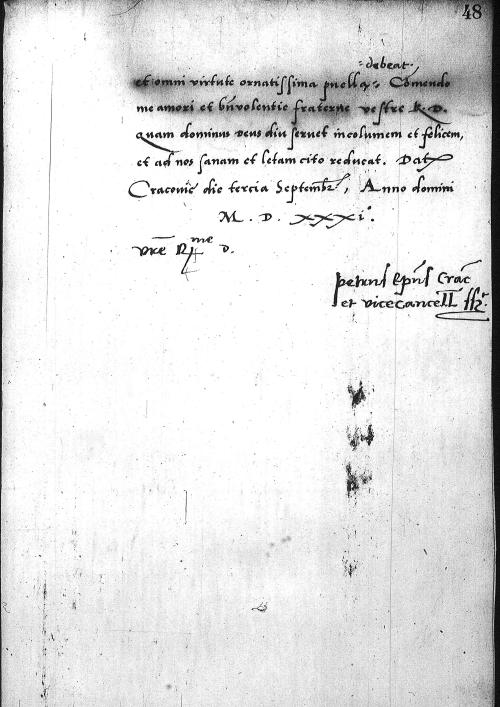 48
debeat.
et omni virtute ornatissima puella. Comendo
me amori et bn̄volentie fraterne vestre R. D.
quam dominus deus diu servet incolumem et felicem,
et ad nos sanam et letam cito reducat. Dat
Cracovie die tercia Septembr̄, Anno domini
M. D. XXXI°.
Vrē R me D.
petrus Ep̄us Crac̄
et vicecancell ssr